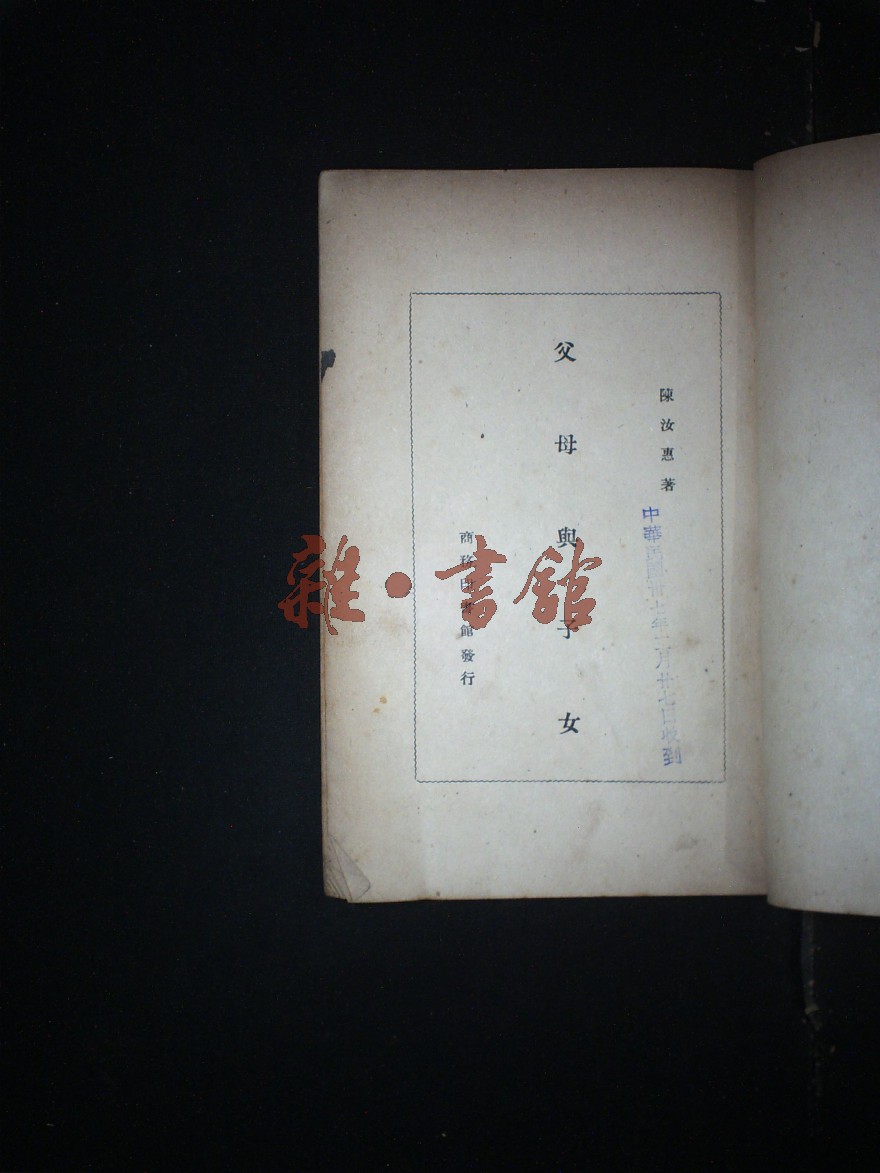 陳汝惠著
中華民國卅七年二月廿七日收到
父母與子女
商務印書館發行
雜·書館